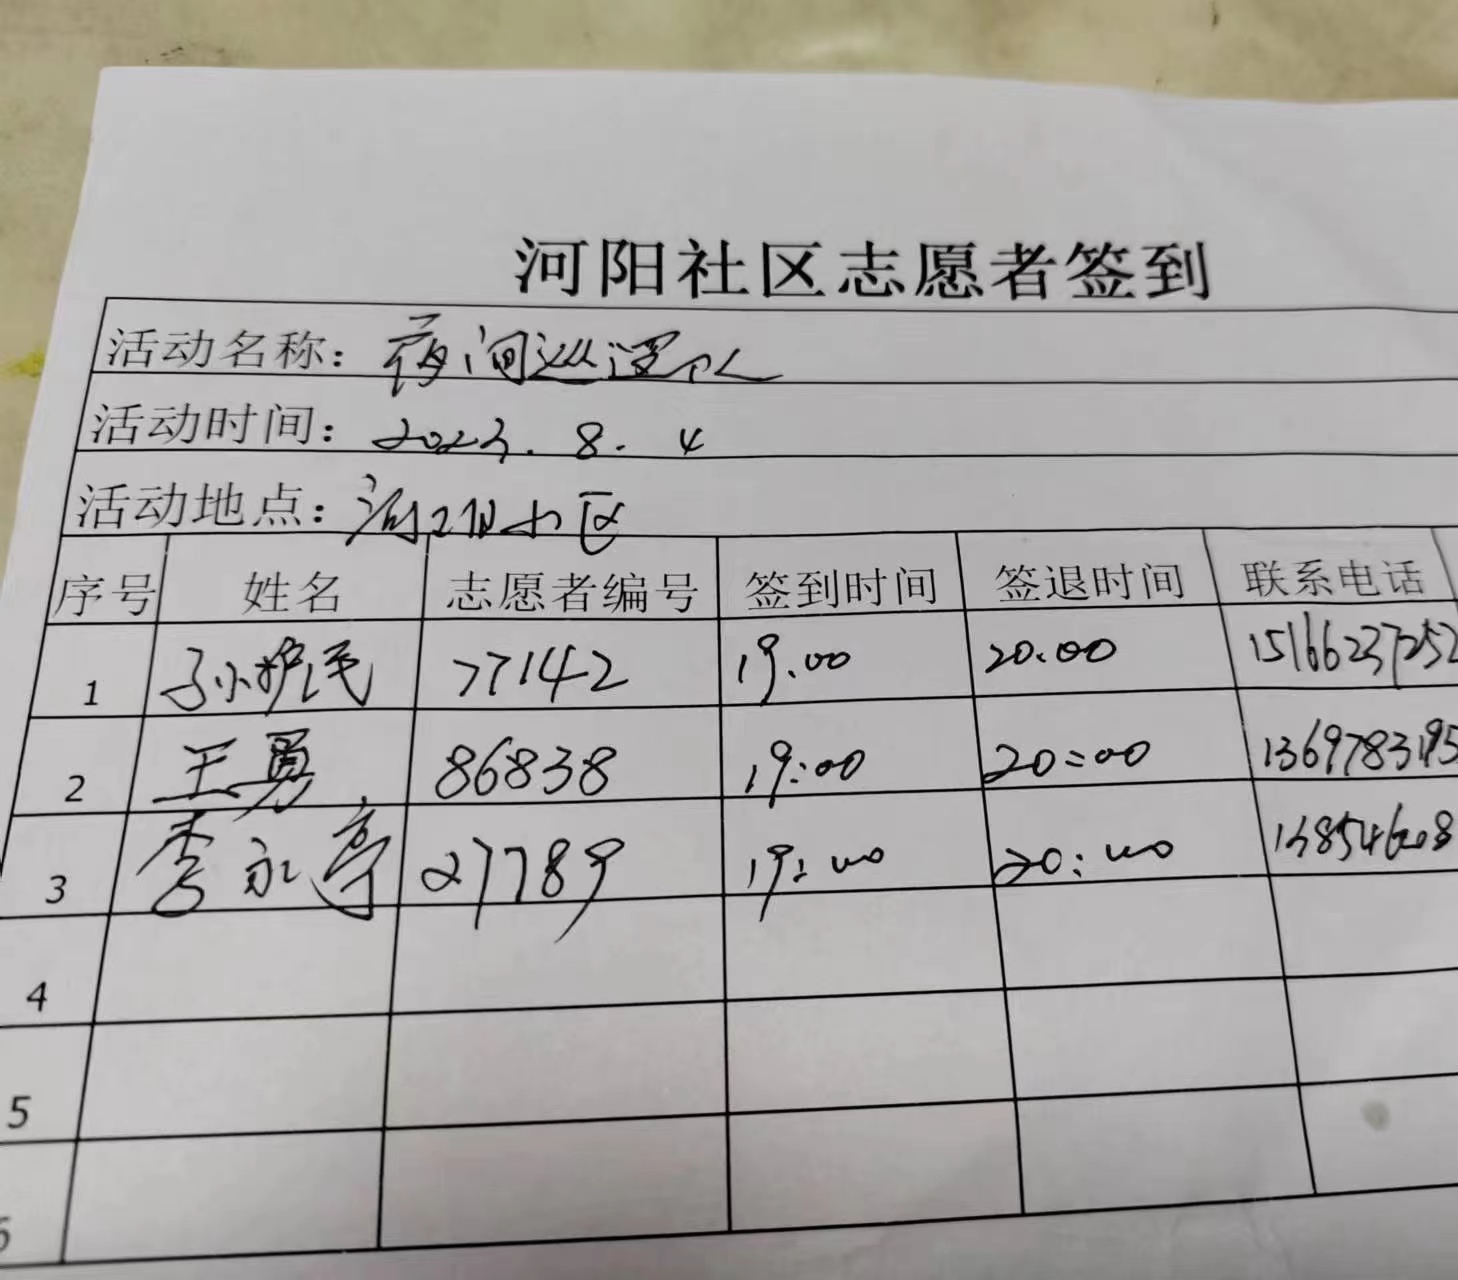 河阳社区志愿者签到
活动名称：夜间巡逻队
活动时间：2023.8.4
活动地点：河阳小区
序号 姓名 志愿者编号 签到时间 签退时间 联系电话
1 孙护民 77142 19.00 20.00 15166237252
2 王勇 86838 19:00 20:00 1369783195
3 李永亭 27789 19:00 20:00
4
5
6